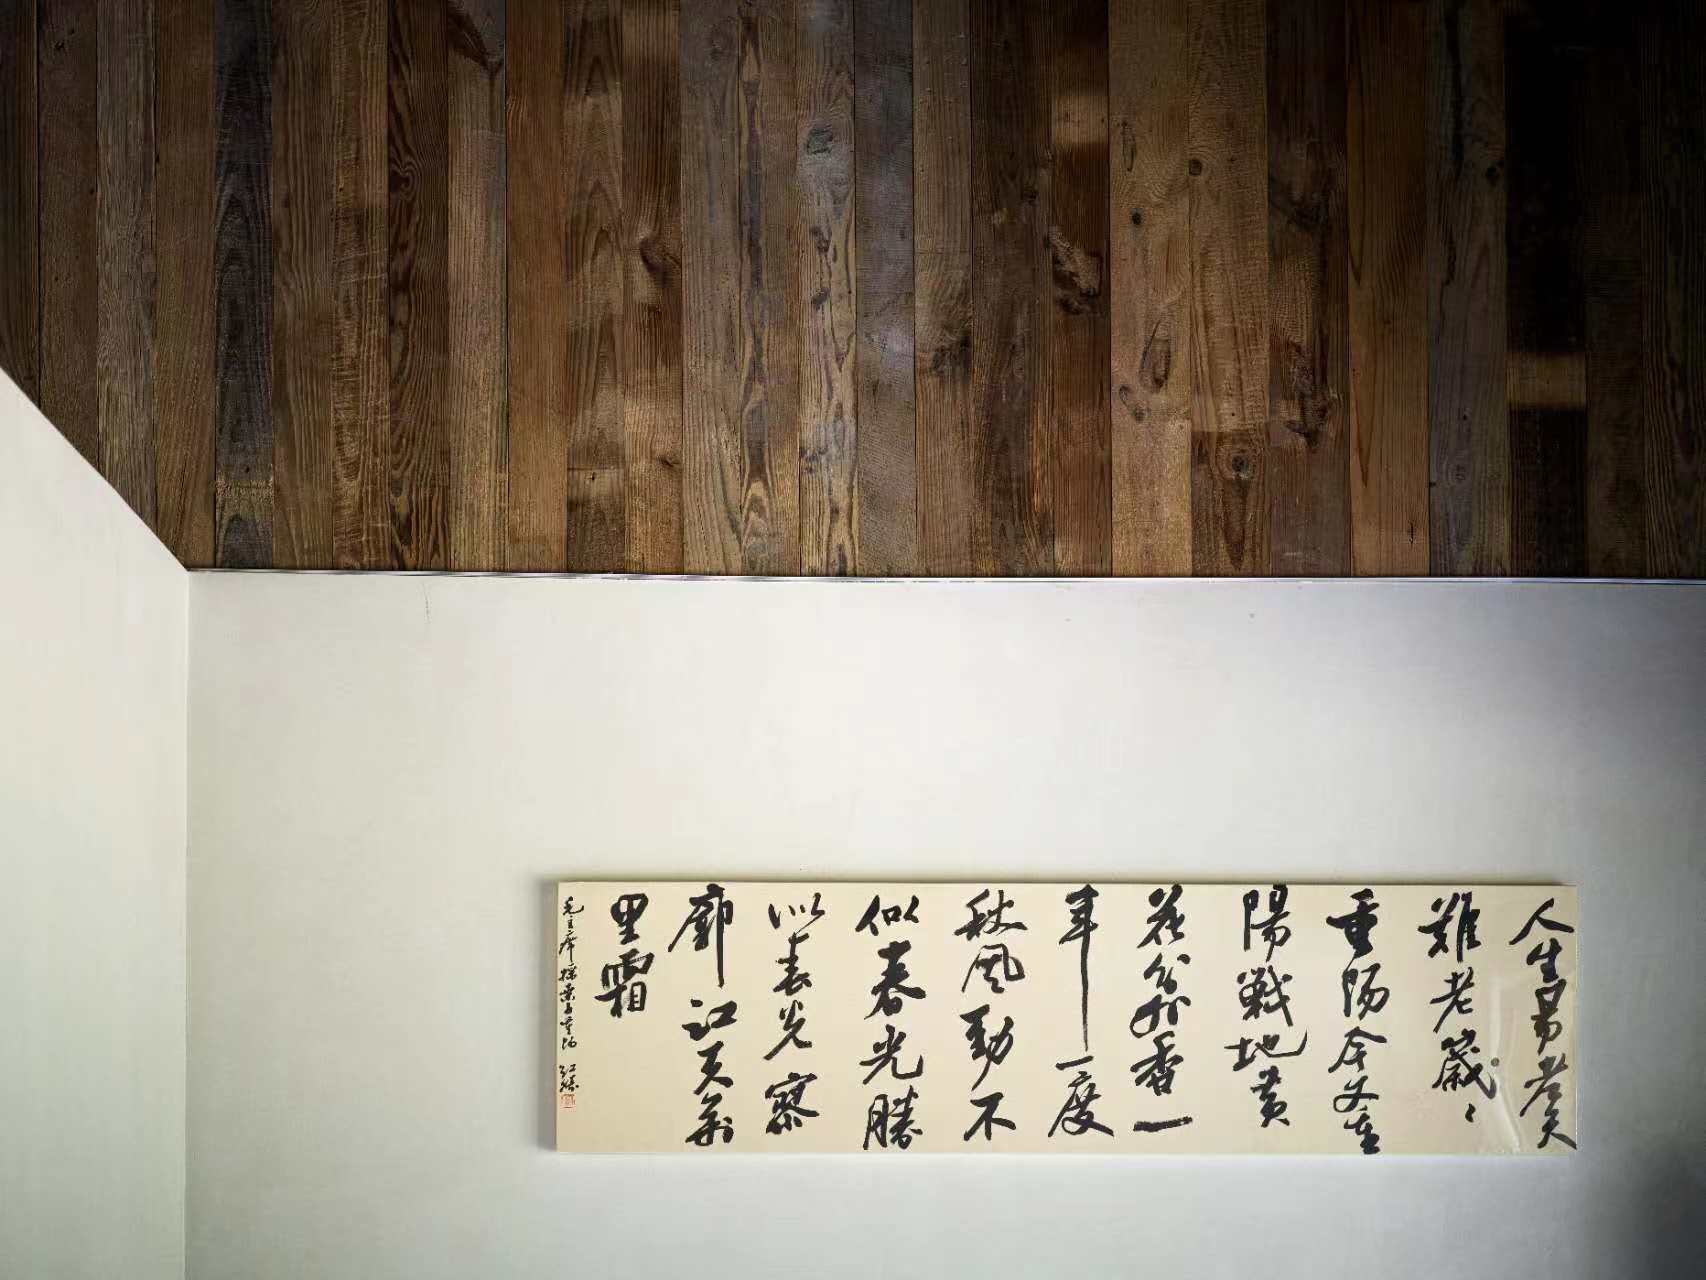 人生易老天
難老歲〻
重陽今又重
陽戰地黄
花分外香一
年一度
秋風勁不
似春光勝
似春光寥
廓江天萬
里霜
毛主席採桑子重陽 紅勝